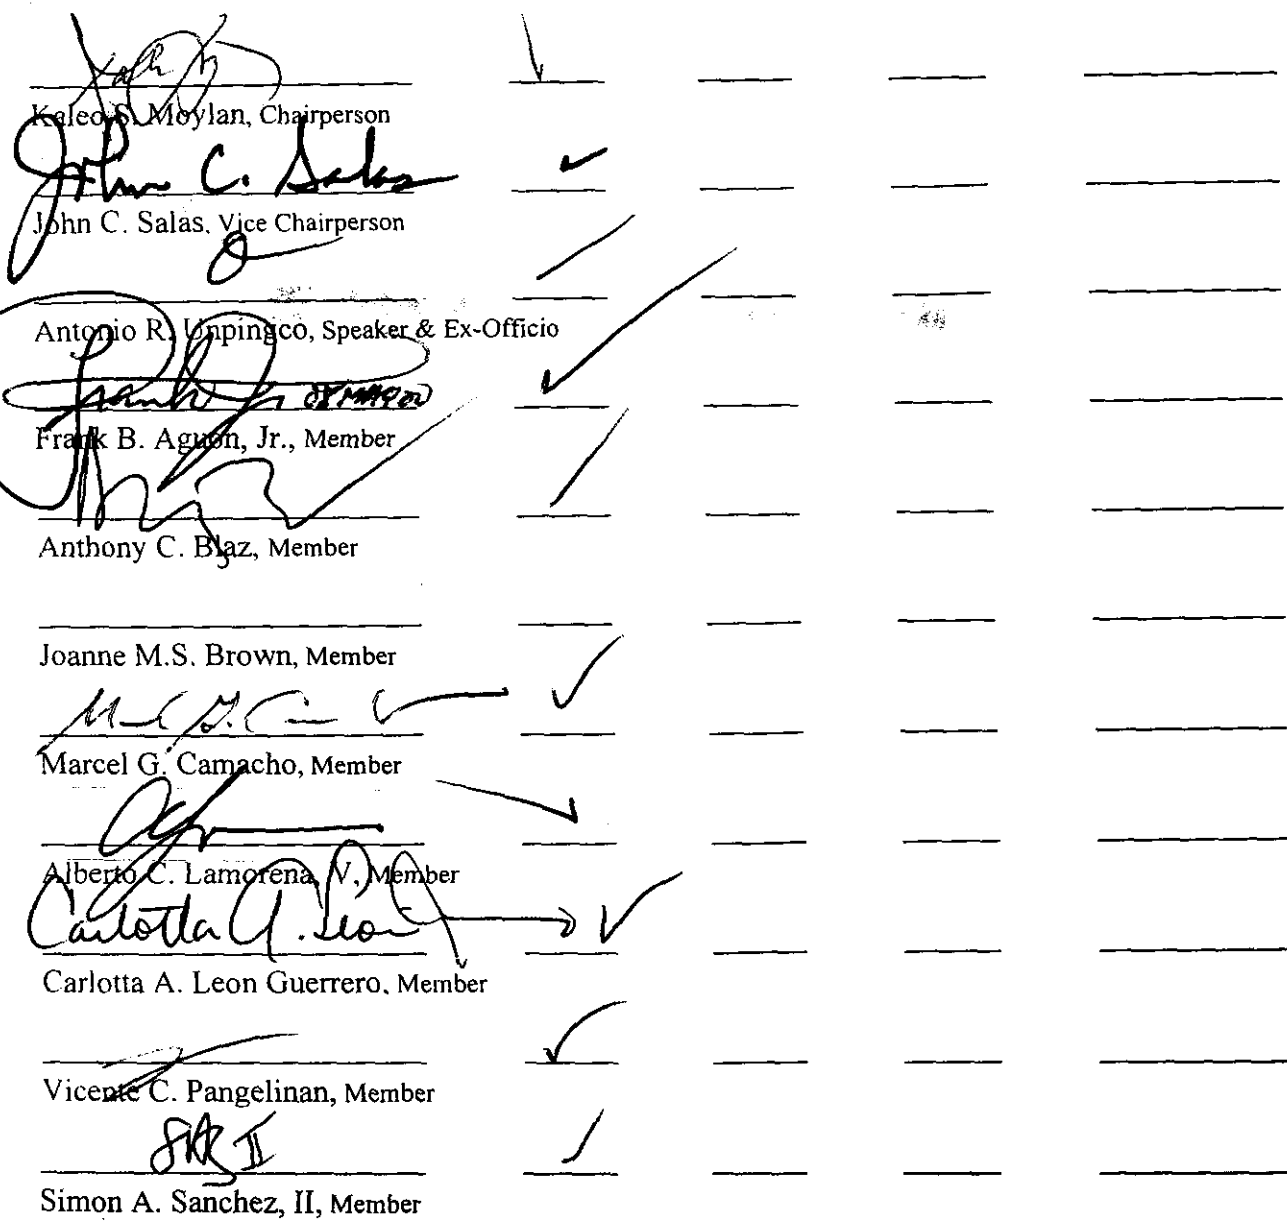 Kaleo S. Moylan, Chairperson
John C. Salas
John C. Salas, Vice Chairperson
Antonio R. Unpingco, Speaker & Ex-Officio
Frank
Frank B. Aguon, Jr., Member
Anthony C. Blaz, Member
Joanne M.S. Brown, Member
Marcel G. Camacho, Member
Alberto C. Lamorena, V, Member
Carlotta A. Leon
Carlotta A. Leon Guerrero, Member
Vicente C. Pangelinan, Member
SAS II
Simon A. Sanchez, II, Member